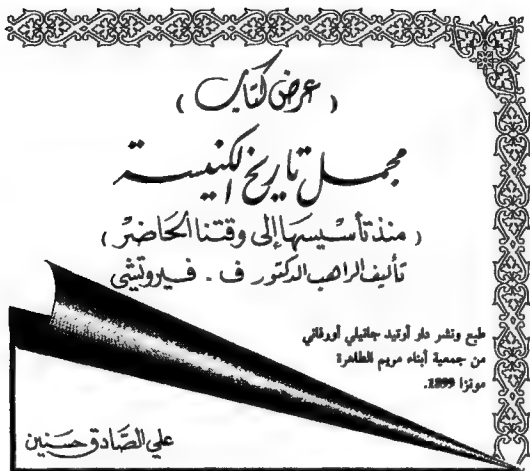 ( عرض كتاب )
مجمل تاريخ الكنيسة
( منذ تأسيسها إلى وقتنا الحاضر )
تأليف الراهب الدكتور ف . فيروتيشي
طبع ونشر دار أوتيد جانيلي أورفاني
من جمعية أبناء مريم الطاهرة
مونزا 1899.
علي الصادق حسنين